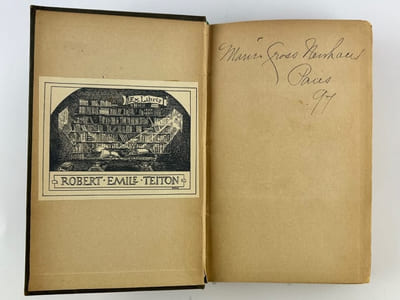 Ex Libris
ROBERT · EMILE · TEITON
Gross
Paris
97